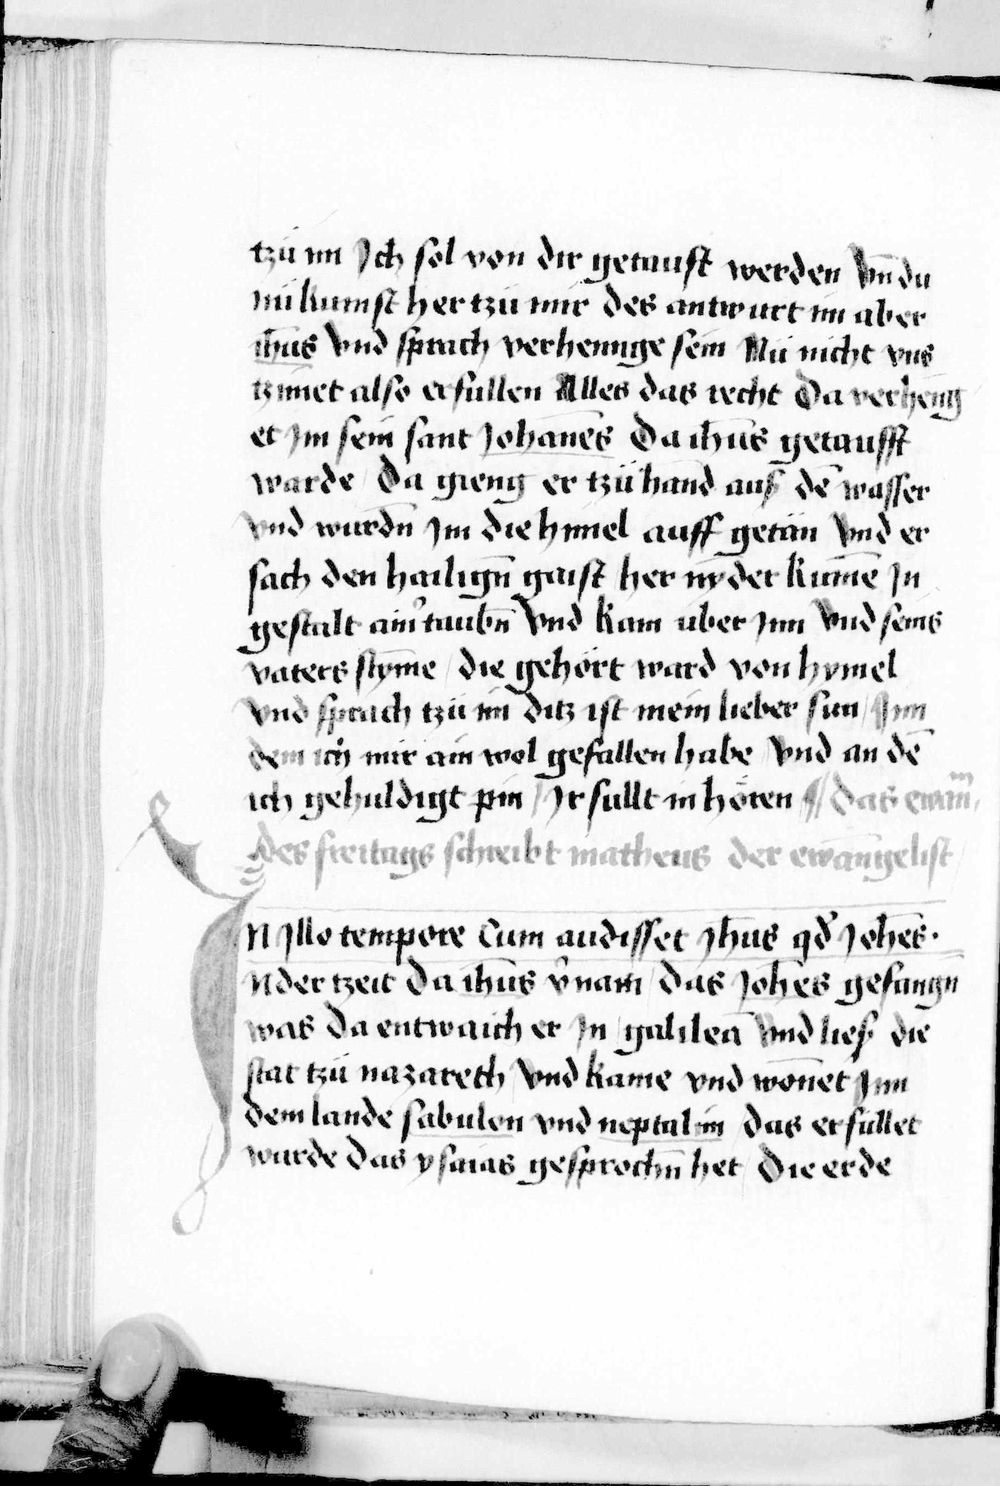 tzü im Ich sol von dir getauft werden Vnd du
nü kumst her tzü mir des antwurt im aber
ih̄us Vnd sprach verhennge sein Nü nicht vns
tzimet also erfullen Alles das recht Da verheng
et Im sein sant Johānes Da ih̄us getaufft
warde / Da gieng er tzü hand auß dē wasser
vnd wurdn̄ Im die himel auff getän Vnd er
sach den hailign̄ gaist her nyder kumē̄ In
gestalt ainr taubn̄ Vnd kam über Inn Vnd seins
vaters stym̄e / die gehört ward von hymel
Vnd sprach tzü im ditz ist mein lieber sun / Inn
dem ich mir ain wol gefallen habe Vnd an dē
ich gehuldigt pin / Ir sullt in hören / das ewām
des freitags schreibt matheus der ewāngelist /
IN Illo tempore Cum audisset Jh̄us qd̄ Joh̄es·
N der tzeit Da ih̄us v̉nam / das Joh̄es gefangn̄
was Da entwaich er In / galilea Vnd ließ die
stat tzü nazareth / Vnd kame vnd wōnet Inn
dem lande sabulon vnd neptalim das erfüllet
wurde das ysaias gesprochn̄ het / Die erde